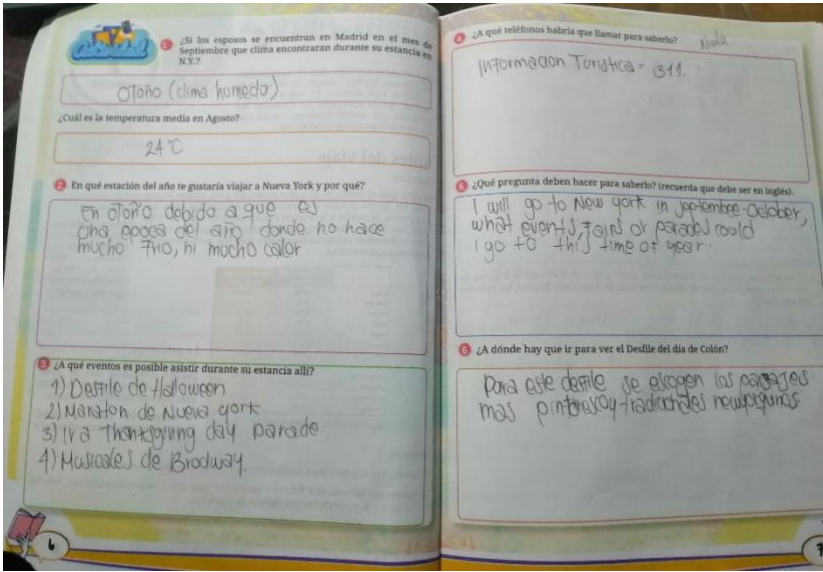 Actividad
1 ¿Si los esposos se encuentran en Madrid en el mes de
Septiembre que clima encontraran durante su estancia en
N.Y.?
Otoño (clima humedo)
¿Cuál es la temperatura media en Agosto?
24 °C
2 En qué estación del año te gustaría viajar a Nueva York y por qué?
En otoño debido a que es
una epoca del año donde no hace
mucho frio, ni mucho calor
3 ¿A qué eventos es posible asistir durante su estancia allí?
1) Desfile de Halloween
2) Maraton de Nueva york
3) Ir a Thanksgiving day parade
4) Musicales de Brodway.
6
4 ¿A qué teléfonos habría que llamar para saberlo?
Informacion Turistica = 311.
5 ¿Qué pregunta deben hacer para saberlo? (recuerda que debe ser en inglés).
I will go to New york in septembre-october,
what events, fairs or parades could
I go to this time of year.
6 ¿A dónde hay que ir para ver el Desfile del día de Colón?
Para este desfile se escogen los parajes
mas pintoresco y tradicionales newyorquinos.
7